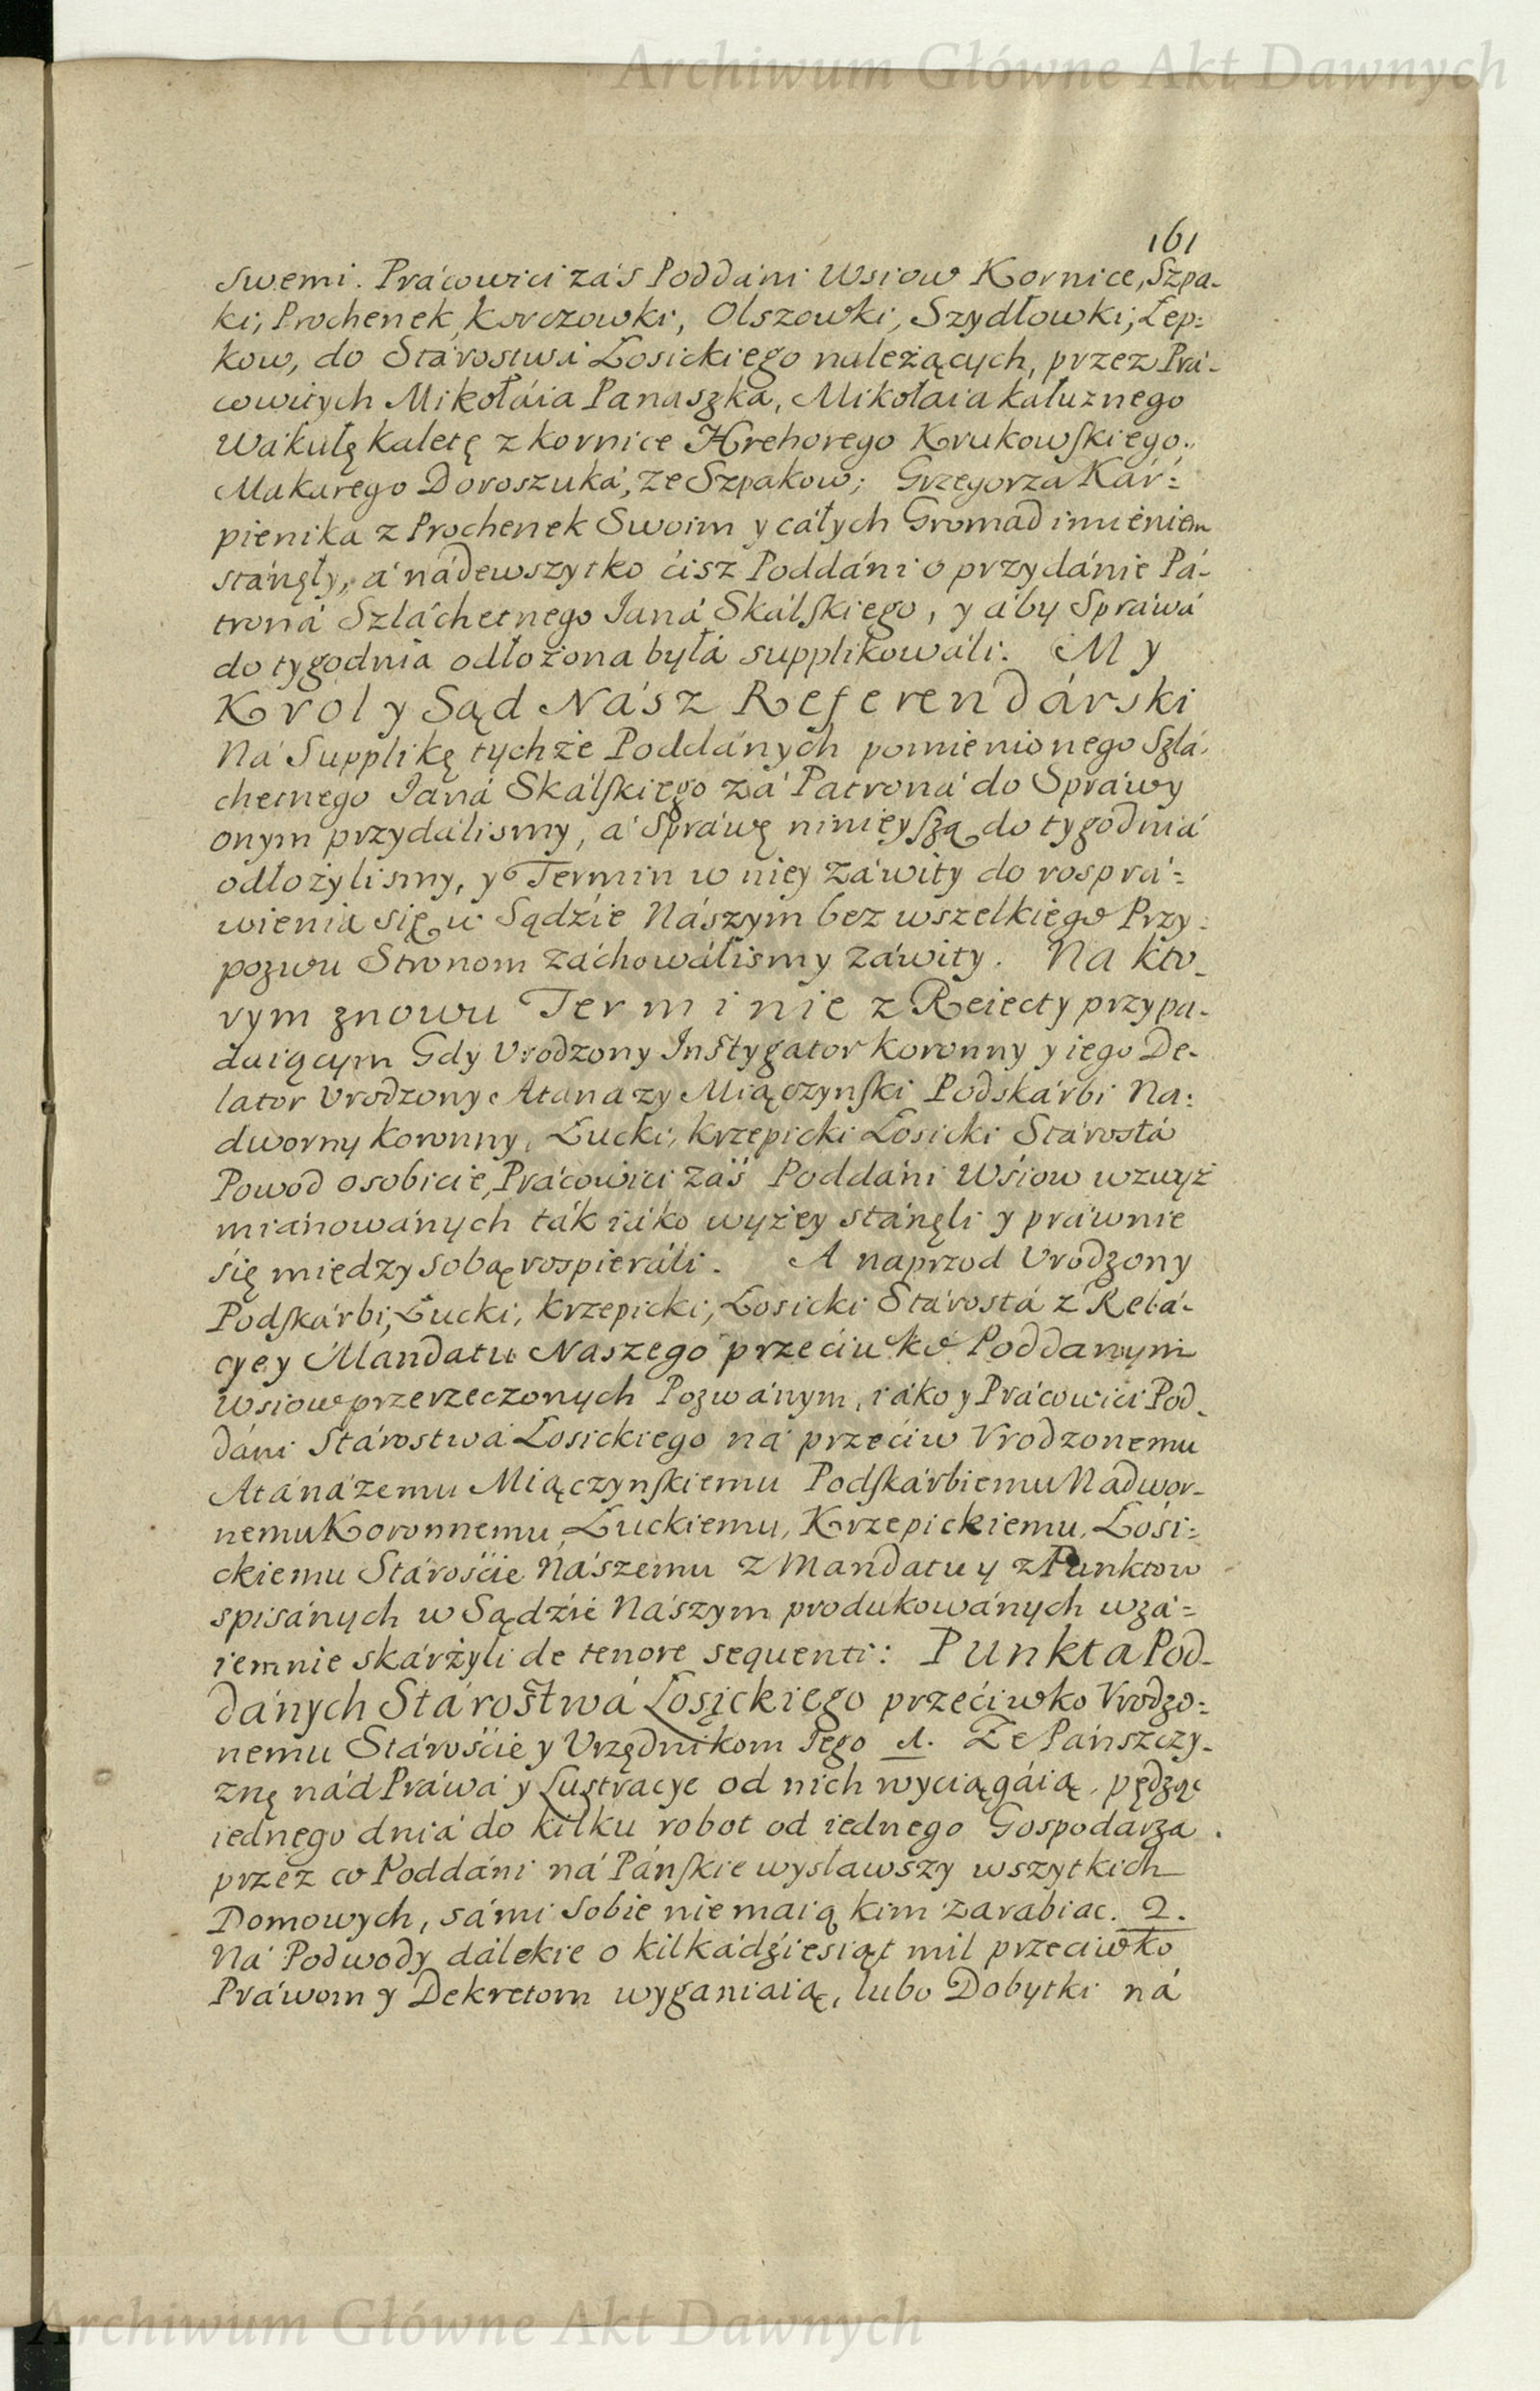 Archiwum Główne Akt Dawnych
161
swemi. Prácowici záś Poddáni Wsiow Kornice, Szpa-
ki, Prochenek, Korczowki, Olszowki, Szydłowki, Łep=
kow, do Stárostwá Łosickiego należących, przez Prá-
cowitych Mikołáia Panaszka, Mikołaia Kałuznego
Wakułę Kaletę z Kornice Hrehorego Krukowskiego,
Makarego Doroszuká, ze Szpakow; Grzegorza Kár=
pienika z Prochenek Swoim y cáłych Gromad imieniem
stánęły, á nádewszytko ćisz Poddáni o przydánie Pá-
troná Szláchetnego Janá Skálskiego, y áby Spráwá
do tygodnia odłożona byłá supplikowáli. My
Krol y Sąd Nász Referendárski
Ná Supplikę tychże Poddánych pomienionego Szlá-
chetnego Janá Skálskiego zá Patroná do Spráwy
onym przydálismy, á Spráwę ninieyszą do tygodniá
odłożylismy, y Termin w niey záwity do rosprá=
wienia się w Sądzie Nászym bez wszelkiego Przy=
pozwu Stronom záchowálismy záwity. Na kto-
rym znowu Terminie z Reiecty przypa-
daiącym Gdy Vrodzony Instygator Koronny y iego De-
lator Vrodzony Atanazy Miączynski Podskárbi Na=
dworny Koronny, Łucki, Krzepicki Łosicki Stárostá
Powod osobicie, Prácowici záś Poddáni Wśiow wzwyż
miánowánych ták iáko wyżey stánęli y práwnie
się między sobą rospieráli. A naprzod Vrodzony
Podskárbi, Łucki, Krzepicki, Łosicki Stárostá z Relá-
cye y Mandatu Naszego przećiwko Poddanym
Wsiow przerzeczonych Pozwánym, iáko y Prácowici Pod-
dáni Stárostwá Łosickiego ná przećiw Vrodzonemu
Atánázemu Miączynskiemu Podskárbiemu Nadwor-
nemu Koronnemu, Łuckiemu, Krzepickiemu, Łosi=
ckiemu Stárośćie Nászemu z Mandatu y z Punktow
spisánych w Sądzie Nászym produkowánych wzá=
iemnie skárżyli de tenore sequenti: Punkta Pod-
dánych Stárostwá Łosickiego przećiwko Vrodzo=
nemu Stárośćie y Vrzędnikom Jego 1. Że Pánszczy-
znę nád Práwá y Lustracye od nich wyciągáią, pędząc
iednego dniá do kilku robot od iednego Gospodarza.
przez co Poddáni ná Páńskie wysławszy wszytkich
Domowych, sámi sobie nie maią kim zarabiac. 2.
Ná Podwody dálekie o kilkádźiesiąt mil przeciwko
Práwom y Dekretom wyganiaią, lubo Dobytki ná
Archiwum Główne Akt Dawnych